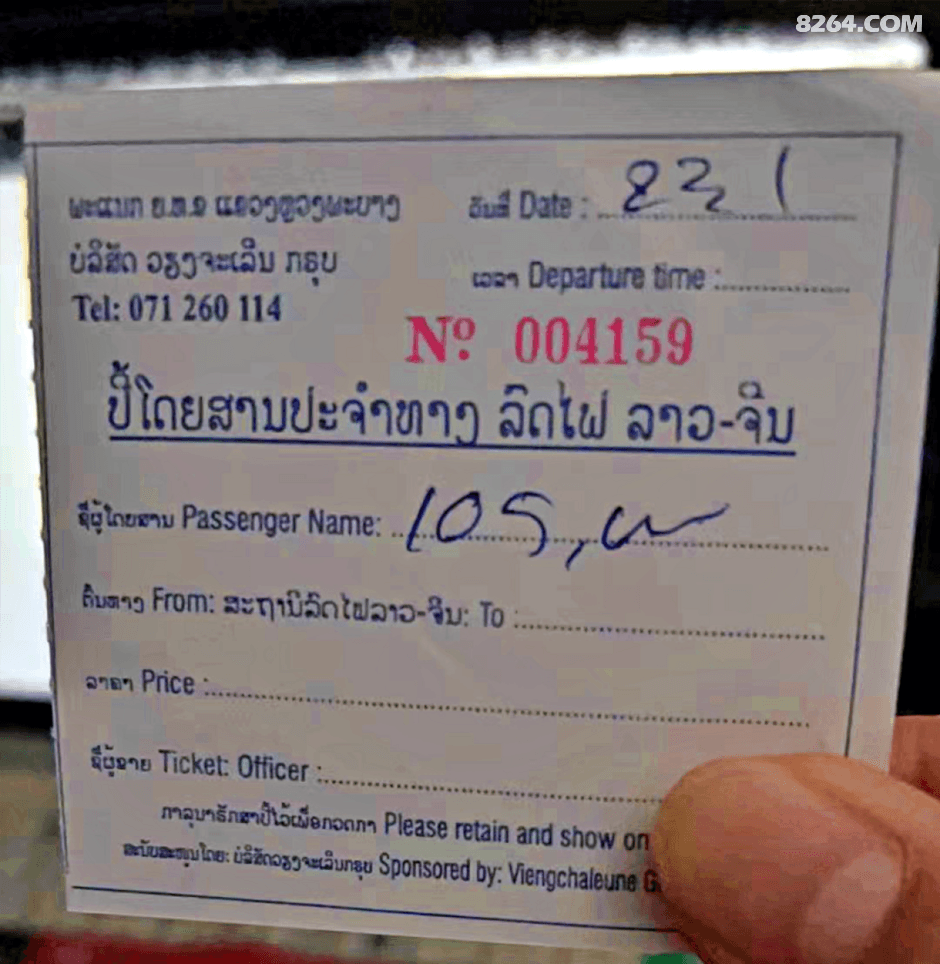 8264.COM
ພະແນກ ຍ.ທ.ຂ ແຂວງຫຼວງພະບາງ
ວັນທີ Date : 23 1
ບໍລິສັດ ວຽງຈະເລີນ ກຣຸບ
ເວລາ Departure time :
Tel: 071 260 114
Nº 004159
ປີ້ໂດຍສານປະຈຳທາງ ລົດໄຟ ລາວ-ຈີນ
ຊື່ຜູ້ໂດຍສານ Passenger Name:
ຕົ້ນທາງ From: ສະຖານີລົດໄຟລາວ-ຈີນ: To :
ລາຄາ Price :
ຊື່ຜູ້ຂາຍ Ticket: Officer :
ກາລຸນາຮັກສາປີ້ໄວ້ເພື່ອກວດກາ Please retain and show on
ສະໜັບສະໜູນໂດຍ: ບໍລິສັດວຽງຈະເລີນກຣຸບ Sponsored by: Viengchaleune G